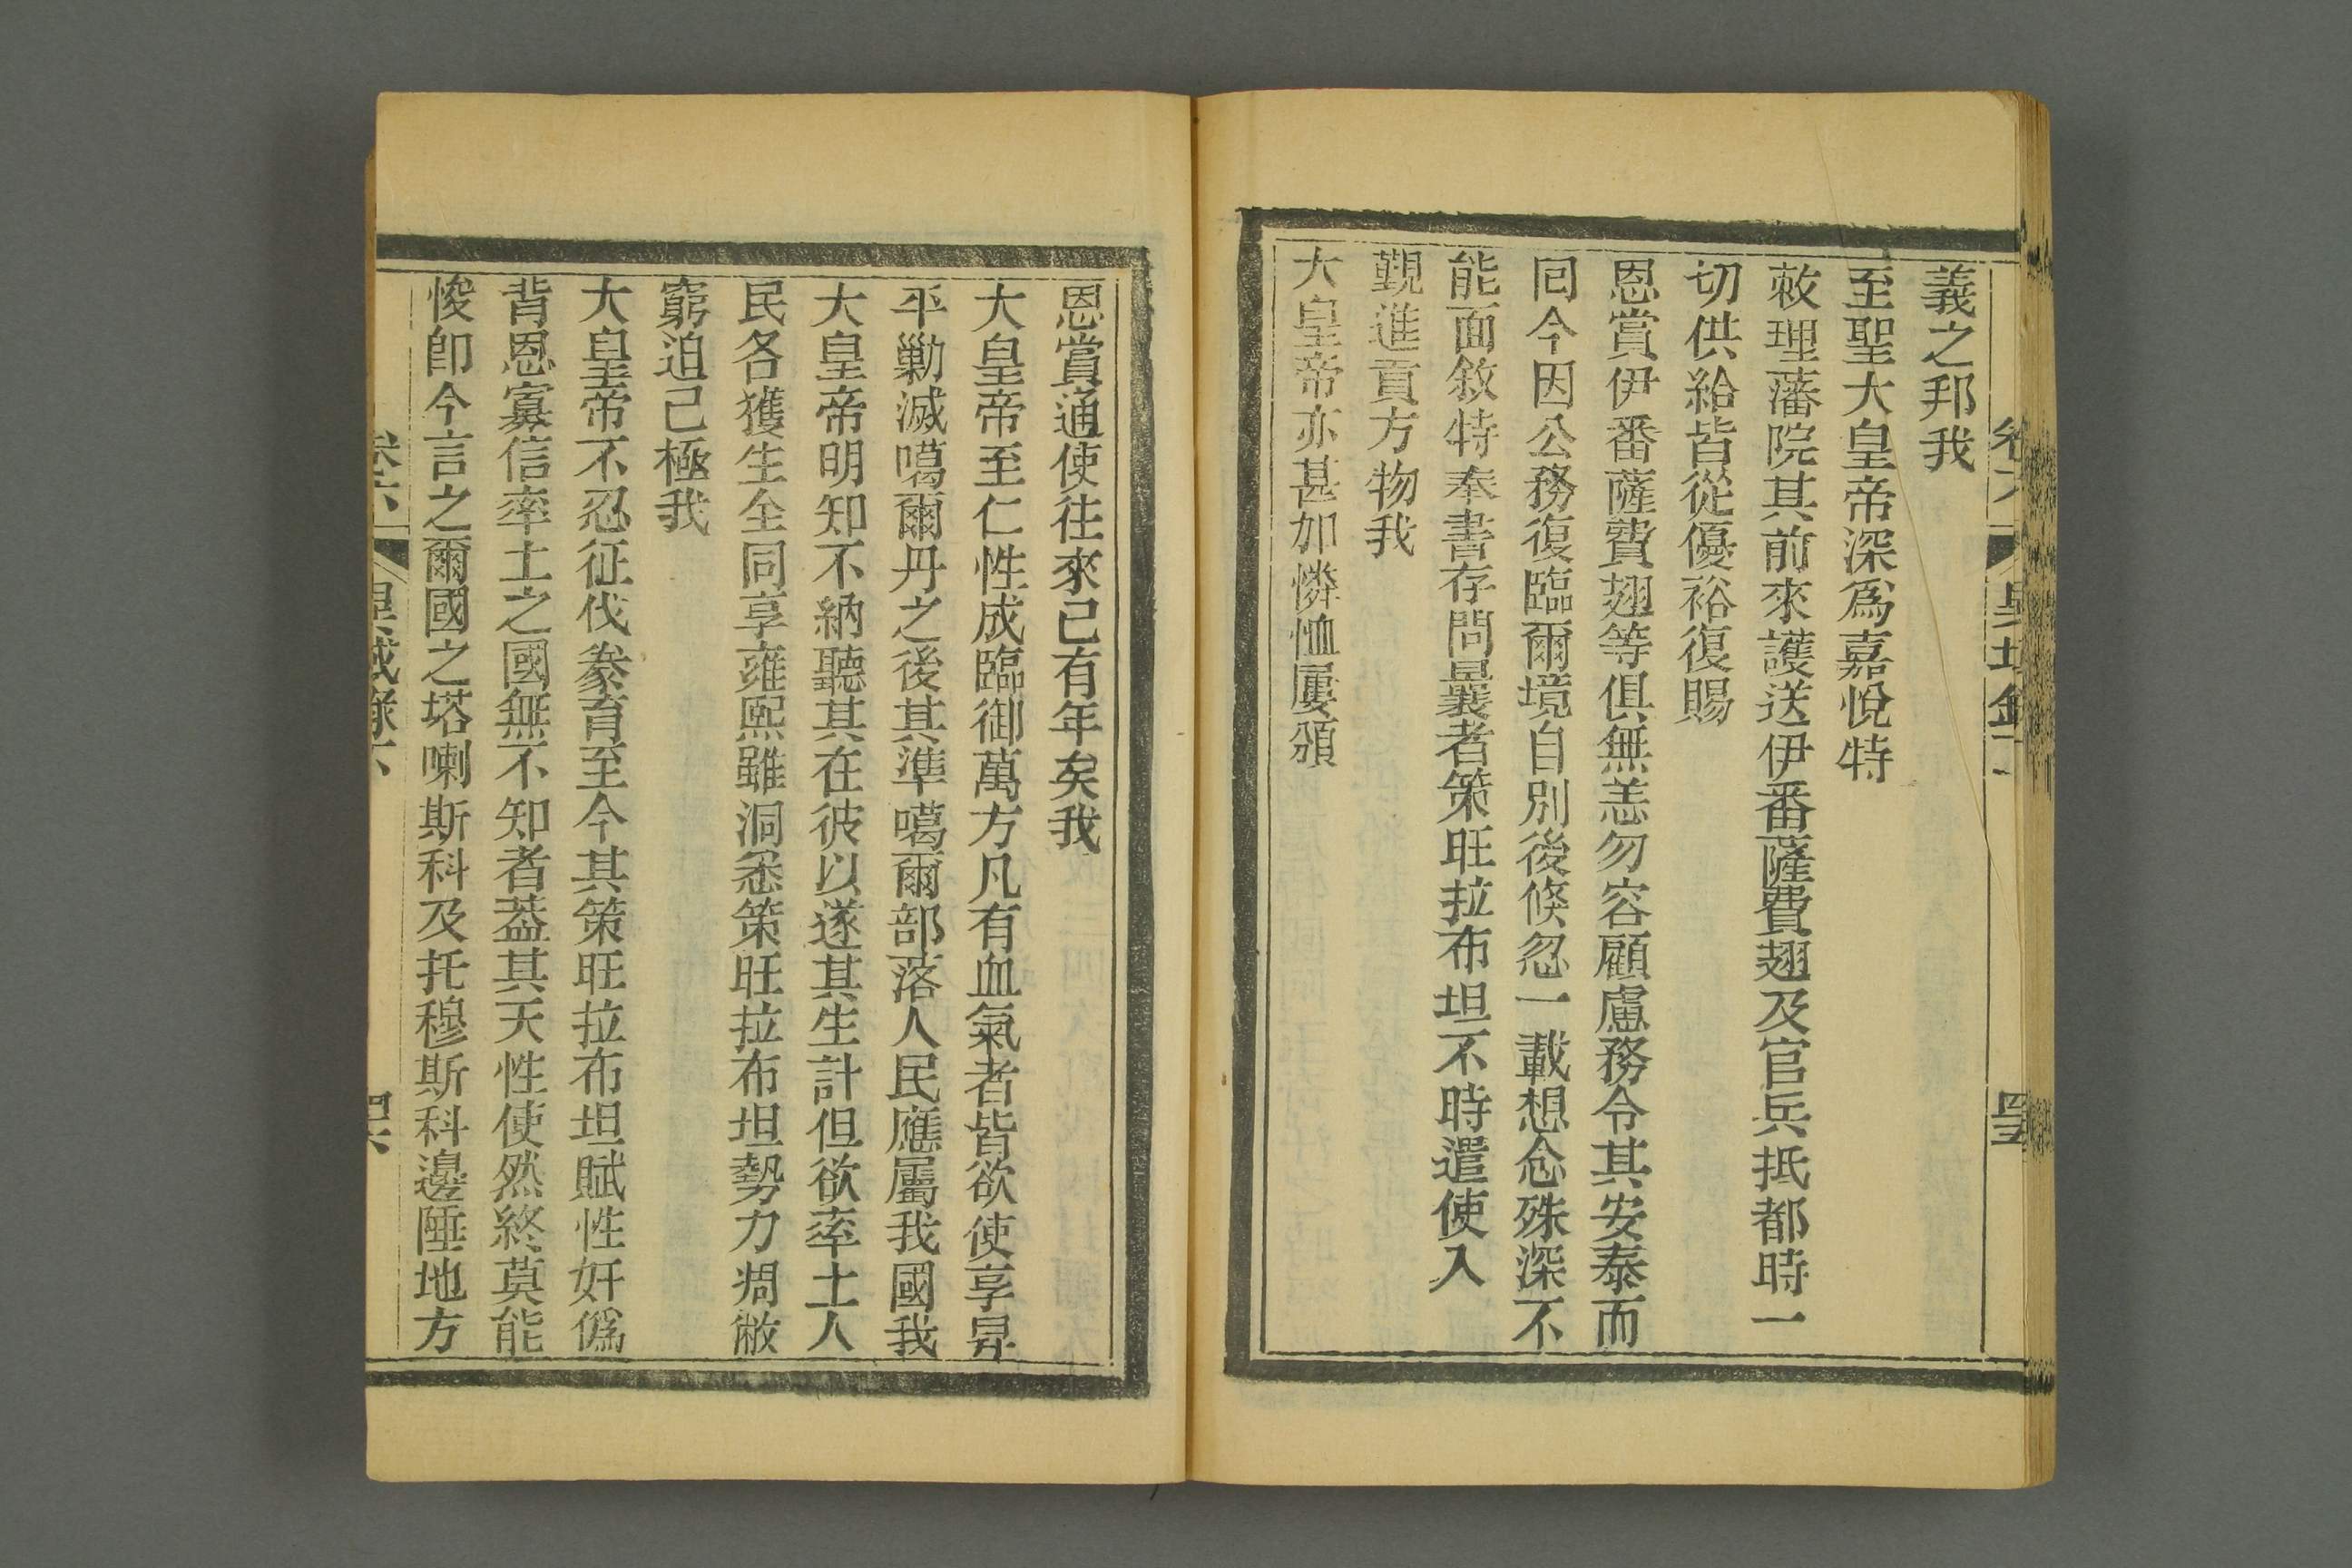 義之邦我
至聖大皇帝深爲嘉悅特
敕理藩院其前來護送伊番薩費翅及官兵抵都時一
切供給皆從優裕復賜
恩賞伊番薩費翅等俱無恙勿容顧慮務令其安泰而
囘今因公務復臨爾境自別後倐忽一載想念殊深不
能面敘特奉書存問曩者策旺拉布坦不時遣使入
覲進貢方物我
大皇帝亦甚加憐恤屢頒
恩賞通使往來已有年矣我
大皇帝至仁性成臨御萬方凡有血氣者皆欲使享昇
平勦滅噶爾丹之後其準噶爾部落人民應屬我國我
大皇帝明知不納聽其在彼以遂其生計但欲率土人
民各獲生全同享雍熙雖洞悉策旺拉布坦勢力凋敝
窮迫已極我
大皇帝不忍征伐豢育至今其策旺拉布坦賦性奸僞
背恩寡信率土之國無不知者葢其天性使然終莫能
悛卽今言之爾國之塔喇斯科及托穆斯科邊陲地方